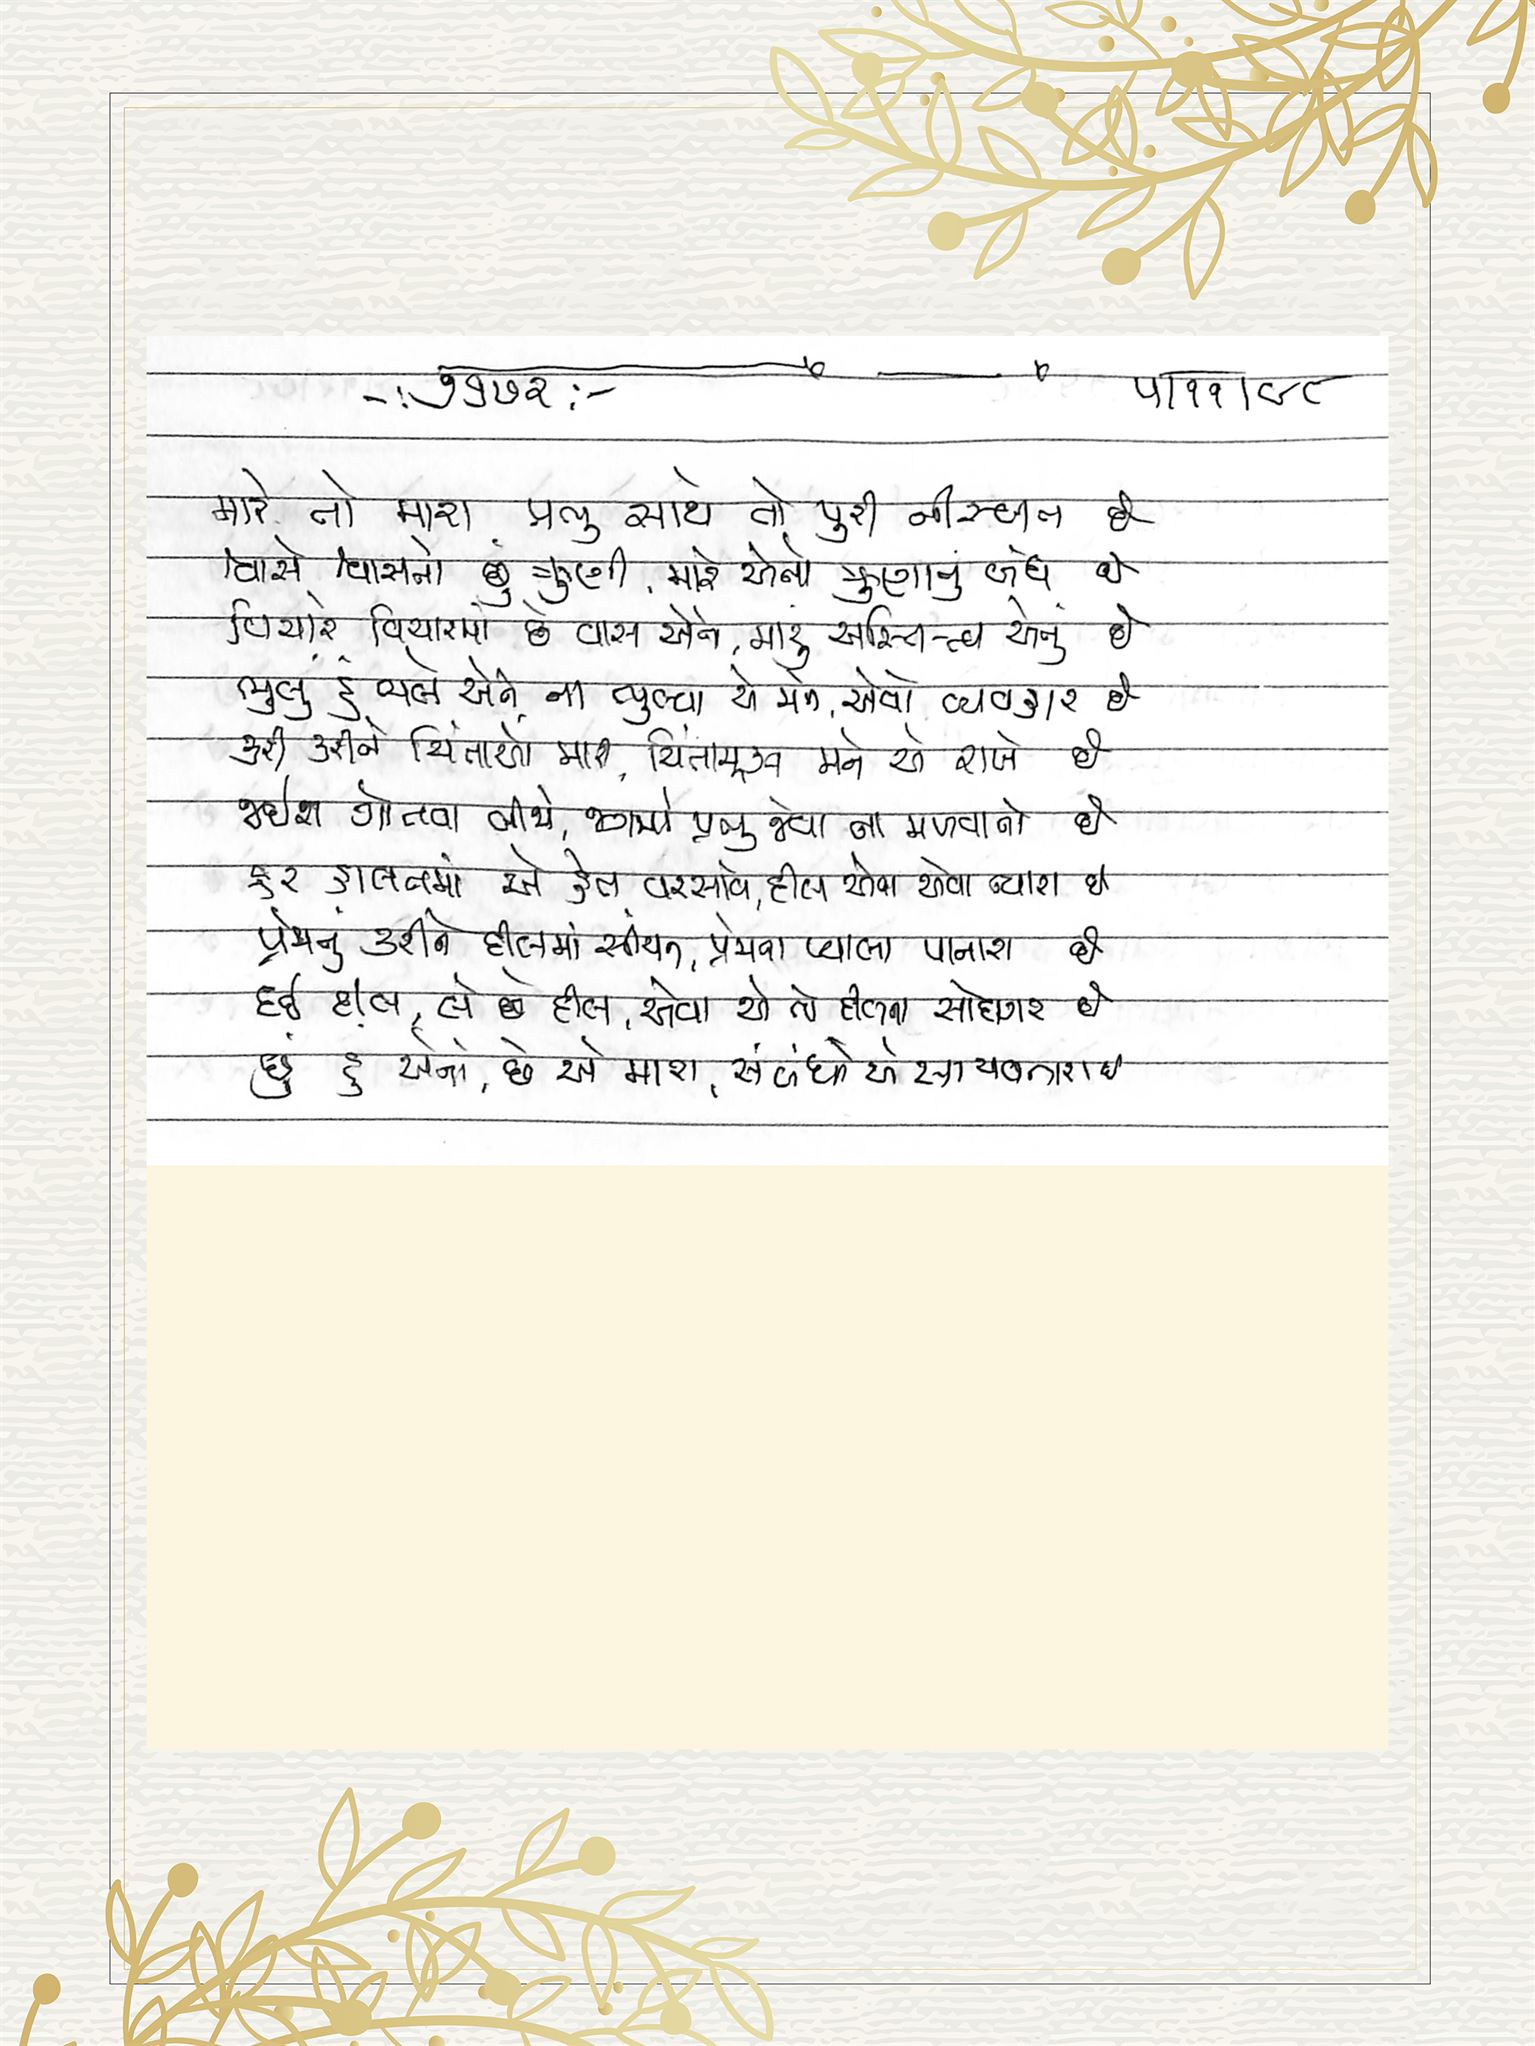 -: ૭૧૭૨ :- ૫।૧૧।૯૮
મારે તો મારા પ્રભુ સાથે તો પુરી નીસ્બત છે
શ્વાસે શ્વાસનો છું ઋણી, મારે એનો ઋણાનું બંધ છે
વિચારે વિચારમાં છે વાસ એને, મારું અસ્તિત્ત્વ એનું છે
ભુલું હું ભલે એને ના ભુલ્યા એ મને, એવો વ્યવહાર છે
કરી કરીને ચિંતાઓ મારી, ચિંતામૂક્ત મને એ રાખે છે
ગોતવા બીજે, પ્રભુ જેવા ના મળવાનો છે
હર હાલતમાં એ હેત વરસાવે, દીલ એવા એવા ન્યારા છે
પ્રેમનું કરીને દીલમાં સીંચન, પ્રેમના પ્યાલા પાનારા છે
દઈ દીલ, લે છે દીલ, એવા એ તો દીલના સોદાગર છે
છું હું એનો, છે એ મારા, સંબંધો એ સાચવનારા છે